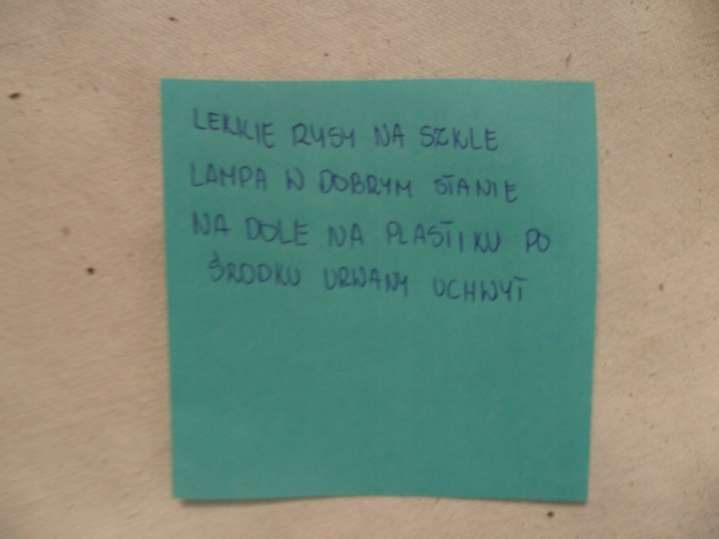 LEKKIE RYSY NA SZKLE
LAMPA W DOBRYM STANIE
NA DOLE NA PLASTIKU PO
ŚRODKU URWANY UCHWYT